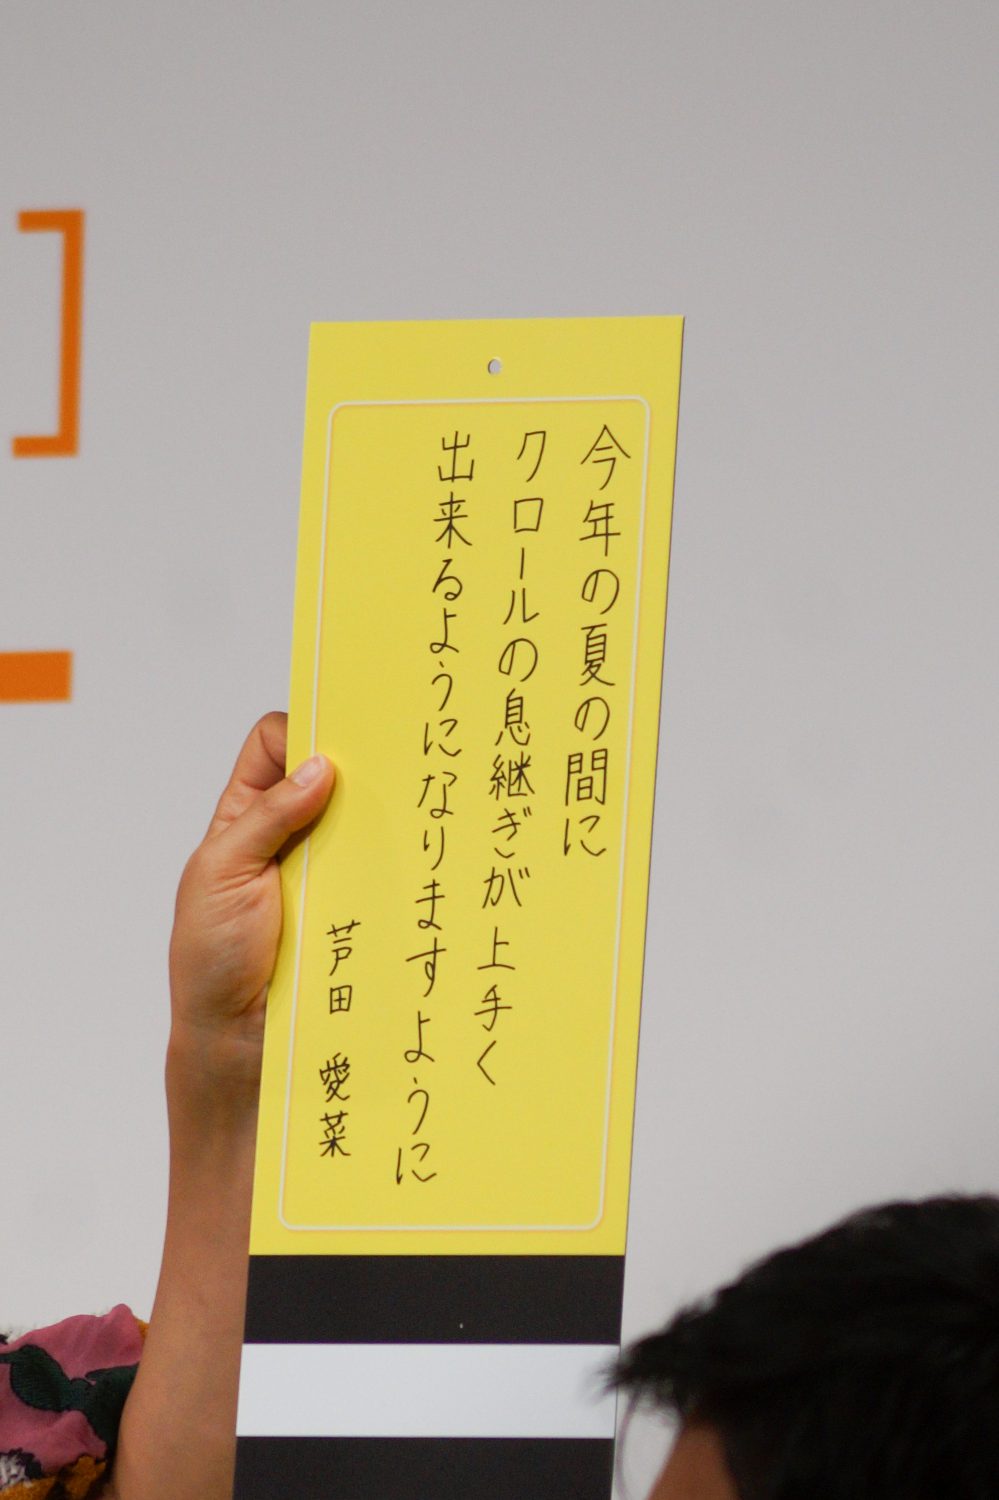 今年の夏の間に
クロールの息継ぎが上手く
出来るようになりますように
芦田 愛菜